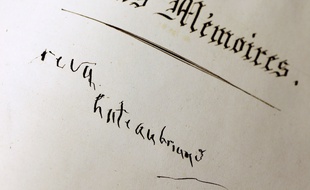 Mémoires.
revu.
hateaubriand